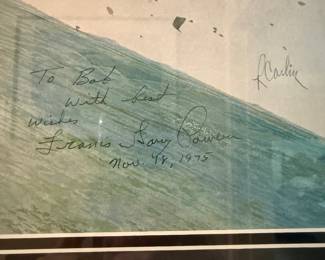 To Bob
with best
wishes
Francis Gary Powers
Nov. 18, 1975